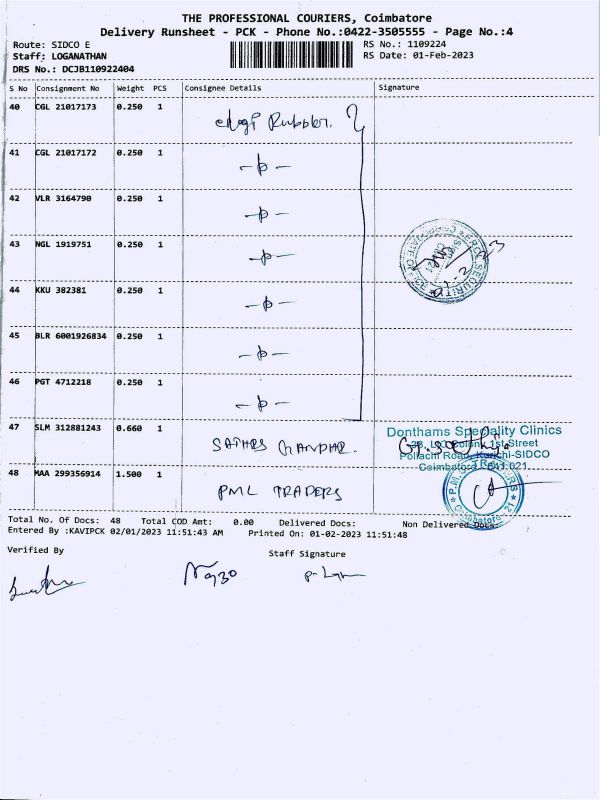 THE PROFESSIONAL COURIERS, Coimbatore
Delivery Runsheet - PCK - Phone No.:0422-3505555 - Page No.:4
Route: SIDCO E RS No.: 1109224
Staff: LOGANATHAN RS Date: 01-Feb-2023
DRS No.: DCJB110922404
S No Consignment No Weight PCS Consignee Details Signature
40 CGL 21017173 0.250 1 Rubber.
41 CGL 21017172 0.250 1
42 VLR 3164790 0.250 1
43 NGL 1919751 0.250 1
44 KKU 382381 0.250 1
45 BLR 6001926834 0.250 1
46 PGT 4712218 0.250 1
47 SLM 312881243 0.660 1
Donthams Speciality Clinics
1st Street
Pollachi Road, Kurichi-SIDCO
Coimbatore - 641 021.
48 MAA 299356914 1.500 1 PML TRADERS
Total No. Of Docs: 48 Total COD Amt: 0.00 Delivered Docs: Non Delivered Docs:
Entered By :KAVIPCK 02/01/2023 11:51:43 AM Printed On: 01-02-2023 11:51:48
Verified By Staff Signature